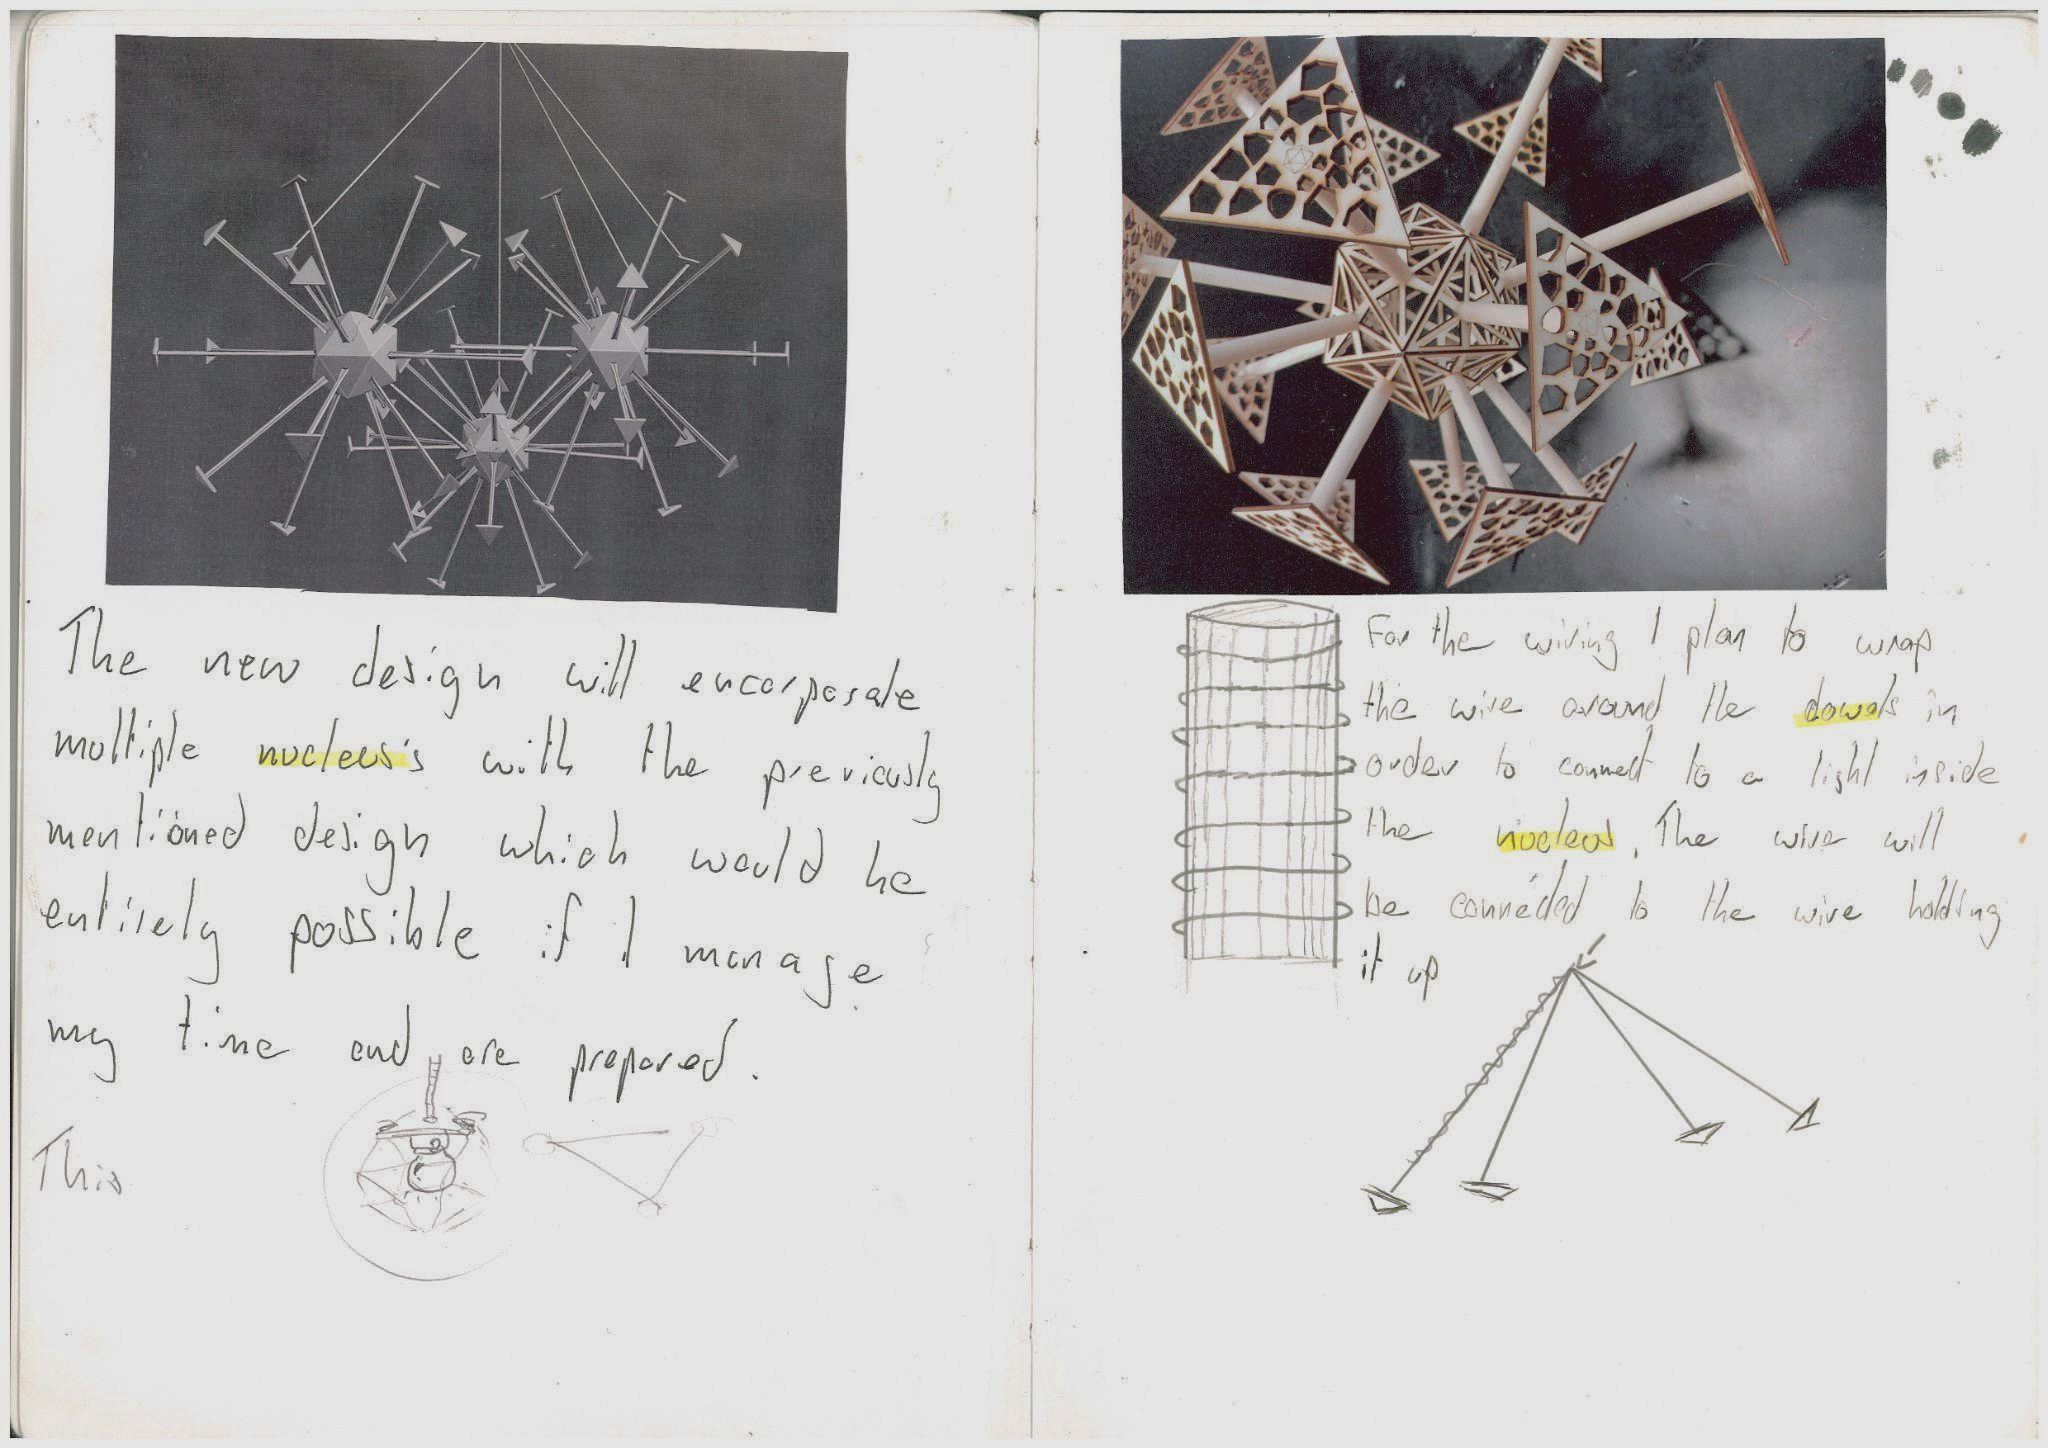 The new design will encorporate
multiple nucleus's with the previously
mentioned design which would be
entirely possible if I manage
my time and are prepared.
This
For the wiring I plan to wrap
the wire around the dowels in
order to connect to a light inside
the nucleus. The wire will
be connected to the wire holding
it up